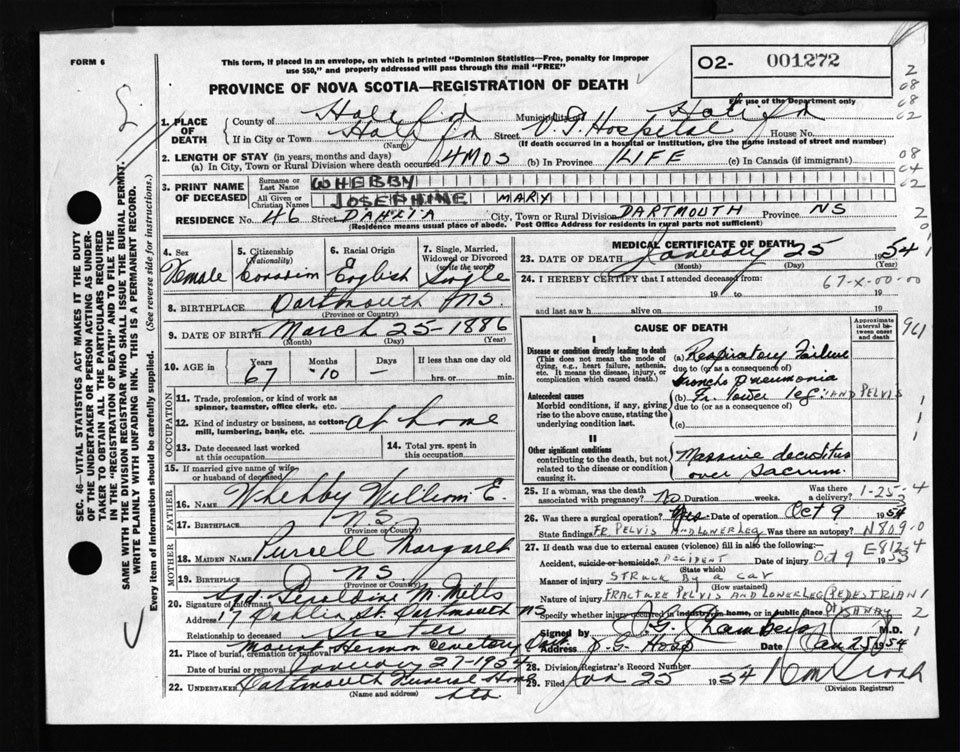 FORM 6
This form, if placed in an envelope, on which is printed "Dominion Statistics—Free, penalty for improper
use $50," and properly addressed will pass through the mail "FREE"
O2- 001272
For use of the Department only
PROVINCE OF NOVA SCOTIA—REGISTRATION OF DEATH
1. PLACE OF DEATH
County of Halifax Municipality of Halifax
If in City or Town Halifax Street V.G. Hospital House No.
(Name) (If death occurred in a hospital or institution, give the name instead of street and number)
2. LENGTH OF STAY (in years, months and days)
(a) In City, Town or Rural Division where death occurred 4 MOS (b) In Province LIFE (c) In Canada (if immigrant)
3. PRINT NAME OF DECEASED
Surname or Last Name WHEBBY
All Given or Christian Names JOSEPHINE MARY
RESIDENCE No. 46 Street DAHLIA City, Town or Rural Division DARTMOUTH Province NS
(Residence means usual place of abode. Post Office Address for residents in rural parts not sufficient)
4. Sex Female
5. Citizenship (Nationality) Canadian
6. Racial Origin English
7. Single, Married, Widowed or Divorced (write the word) Single
8. BIRTHPLACE Dartmouth NS
(Province or Country)
9. DATE OF BIRTH March 25-1886
(Month) (Day) (Year)
10. AGE in Years 67 Months 10 Days - If less than one day old hrs. or min.
OCCUPATION
11. Trade, profession, or kind of work as spinner, teamster, office clerk, etc.
12. Kind of industry or business, as cotton-mill, lumbering, bank, etc. at home
13. Date deceased last worked at this occupation
14. Total yrs. spent in this occupation
15. If married give name of wife or husband of deceased
FATHER
16. NAME Whebby William E.
17. BIRTHPLACE NS
(Province or Country)
MOTHER
18. MAIDEN NAME Purcell Margaret
19. BIRTHPLACE NS
(Province or Country)
20. Signature of Informant Sgd. Geraldine M. Mills
Address 17 Dahlia St. Dartmouth NS
Relationship to deceased Sister
21. Place of burial, cremation or removal Mount Hermon Cemetery Dart.
Date of burial or removal January 27-1954
22. UNDERTAKER Dartmouth Funeral Home Ltd
(Name and address)
MEDICAL CERTIFICATE OF DEATH
23. DATE OF DEATH January 25 1954
(Month) (Day) (Year)
24. I HEREBY CERTIFY that I attended deceased from:
67-X-00-00
19 to 19
and last saw h alive on 19
CAUSE OF DEATH
Approximate interval between onset and death
I
Disease or condition directly leading to death
(This does not mean the mode of dying, e.g., heart failure, asthenia, etc. It means the disease, injury, or complication which caused death.)
(a) Respiratory Failure
due to (or as a consequence of)
Broncho Pneumonia
Antecedent causes
Morbid conditions, if any, giving rise to the above cause, stating the underlying condition last.
(b) Fr. lower leg: AND PELVIS
due to (or as a consequence of)
(c)
II
Other significant conditions
contributing to the death, but not related to the disease or condition causing it.
Massive decubitus over sacrum.
25. If a woman, was the death associated with pregnancy? No Duration weeks. Was there a delivery?
1-25-4
26. Was there a surgical operation? Yes Date of operation Oct 9 1954
State findings FR PELVIS AND LOWER LEG Was there an autopsy?
N809-0
27. If death was due to external causes (violence) fill in also the following: E812-4
Accident, suicide or homicide? ACCIDENT Date of injury Oct 9 1953
(State which)
Manner of injury STRUCK BY A CAR
(How sustained)
Nature of injury FRACTURE PELVIS AND LOWER LEG (PEDESTRIAN)
Specify whether injury occurred in industry, in home, or in public place
Signed by M.D.
Address V.G. Hosp Date Jan 25 1954
28. Division Registrar's Record Number
29. Filed Jan 25 1954
(Division Registrar)
SEC. 46—VITAL STATISTICS ACT MAKES IT THE DUTY
OF THE UNDERTAKER OR PERSON ACTING AS UNDER-
TAKER TO OBTAIN ALL THE PARTICULARS REQUIRED
IN THE "REGISTRATION OF DEATH" AND TO FILE THE
SAME WITH THE DIVISION REGISTRAR WHO SHALL ISSUE THE BURIAL PERMIT.
WRITE PLAINLY WITH UNFADING INK. THIS IS A PERMANENT RECORD.
Every item of information should be carefully supplied. (See reverse side for instructions.)